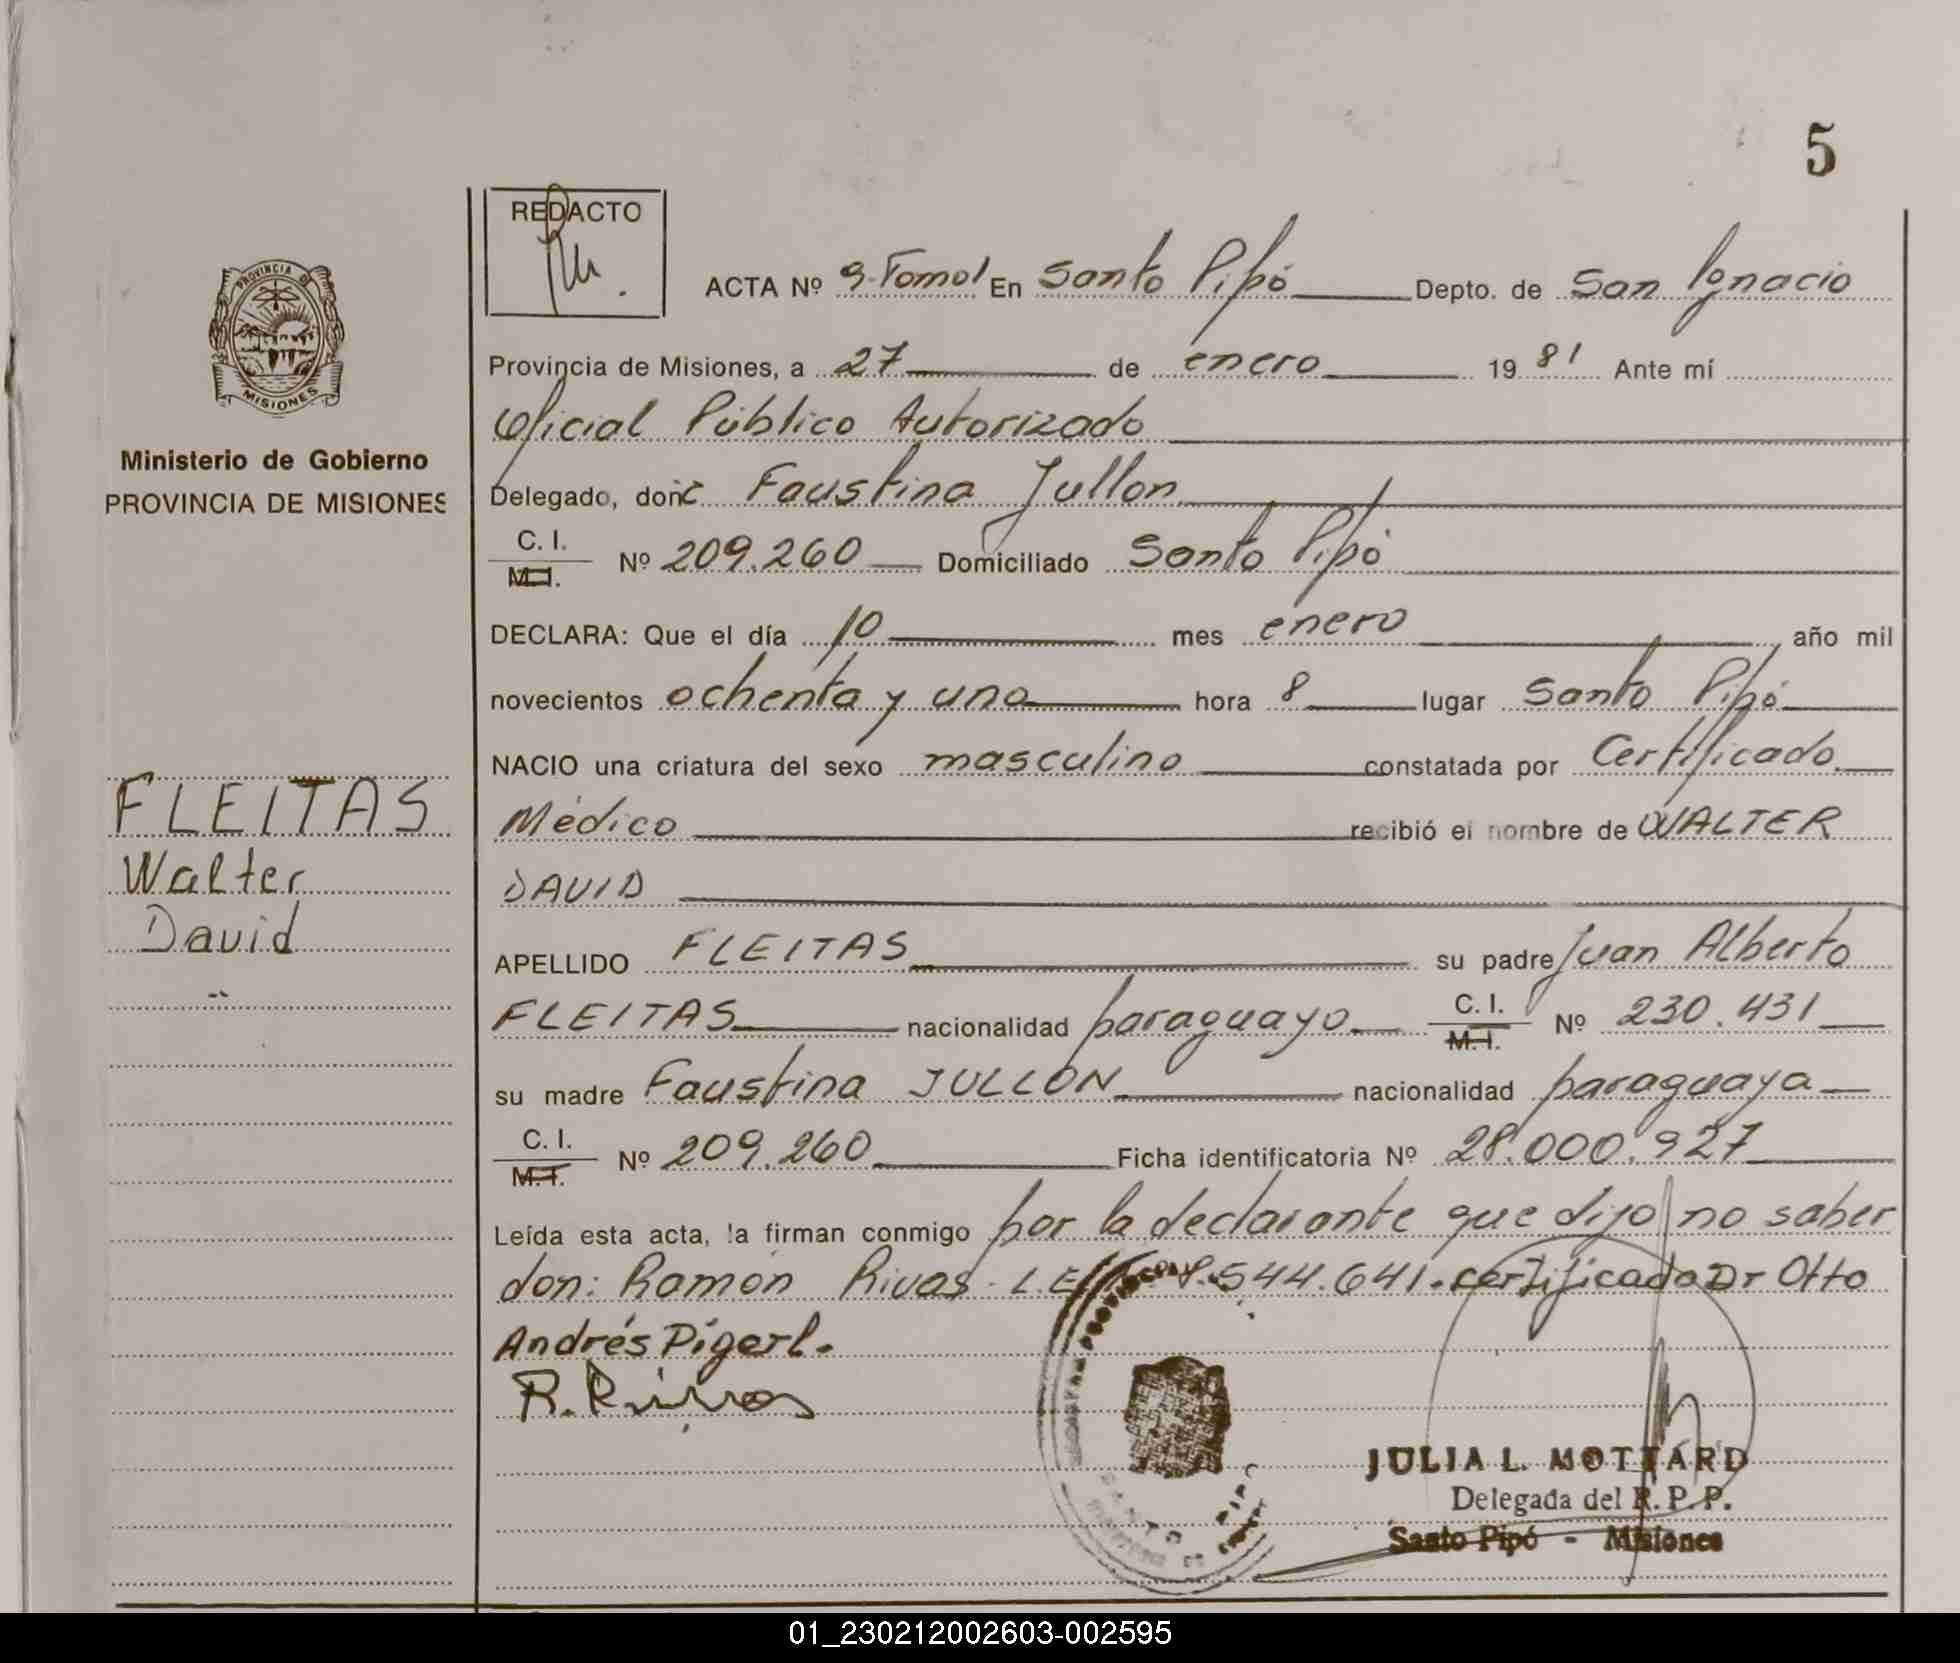 5
REDACTO
ACTA Nº 9-Tomo I En Santo Pipó Depto. de San Ignacio
PROVINCIA DE
MISIONES
Provincia de Misiones, a 27 de enero 1981 Ante mí
Oficial Público Autorizado
Ministerio de Gobierno
PROVINCIA DE MISIONES
Delegado, donc Faustina Jullon
C. I.
M.I. Nº 209.260 Domiciliado Santo Pipó
DECLARA: Que el día 10 mes enero, año mil
novecientos ochenta y uno hora 8 lugar Santo Pipó
NACIO una criatura del sexo masculino constatada por Certificado
Médico recibió el nombre de WALTER
DAVID
FLEITAS
Walter
David
APELLIDO FLEITAS su padre Juan Alberto
FLEITAS nacionalidad paraguayo C. I.
M.I. Nº 230.431
su madre Faustina JULLON nacionalidad paraguaya
C. I.
M.I. Nº 209.260 Ficha identificatoria Nº 28.000.927
Leída esta acta, la firman conmigo por la declarante que dijo no saber
don: Ramón Rivas. L.E. .544.641. certificado Dr Otto
Andrés Pigerl.
R. Rivas
JULIA L. MOTTARD
Delegada del R. P. P.
Santo Pipó - Misiones
01_230212002603-002595